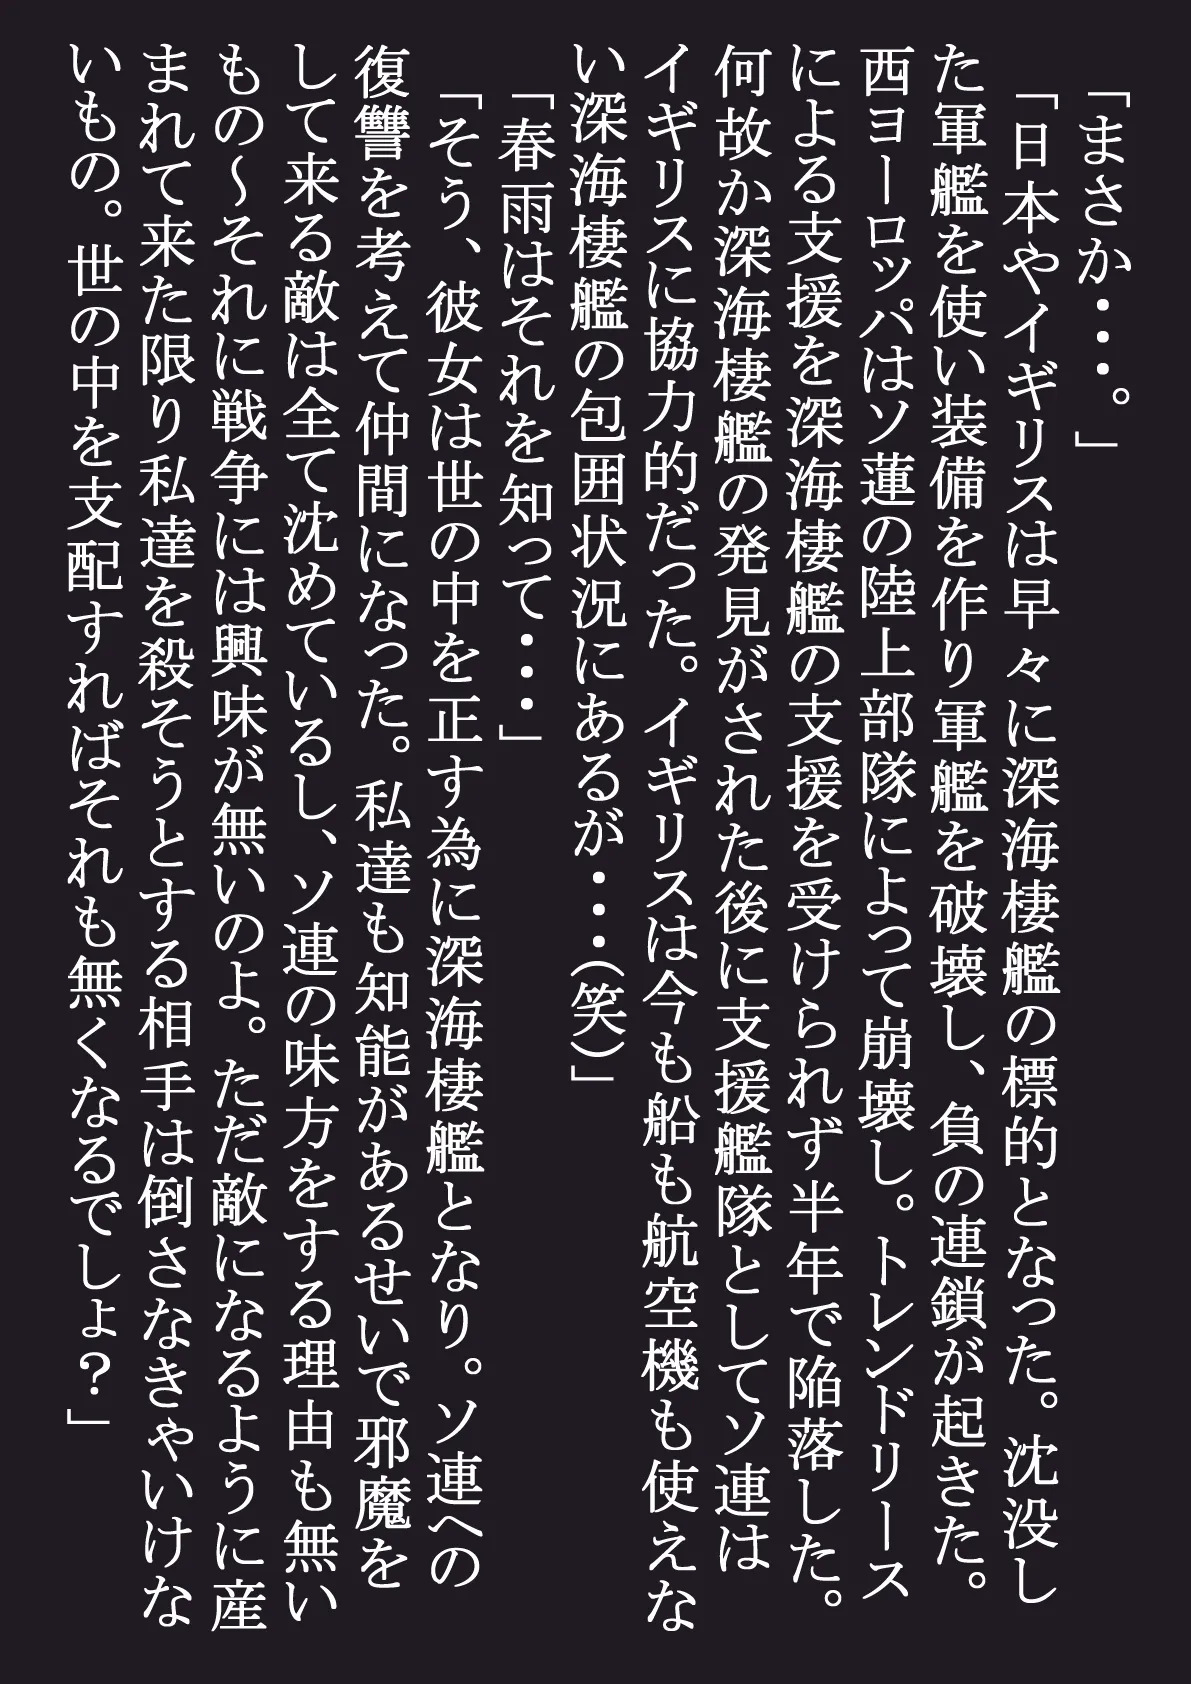 「まさか・・・。」
「日本やイギリスは早々に深海棲艦の標的となった。沈没し
た軍艦を使い装備を作り軍艦を破壊し、負の連鎖が起きた。
西ヨーロッパはソ蓮の陸上部隊によって崩壊し。トレンドリース
による支援を深海棲艦の支援を受けられず半年で陥落した。
何故か深海棲艦の発見がされた後に支援艦隊としてソ連は
イギリスに協力的だった。イギリスは今も船も航空機も使えな
い深海棲艦の包囲状況にあるが・・・(笑)」
「春雨はそれを知って・・・」
「そう、彼女は世の中を正す為に深海棲艦となり。ソ連への
復讐を考えて仲間になった。私達も知能があるせいで邪魔を
して来る敵は全て沈めているし、ソ連の味方をする理由も無い
もの～それに戦争には興味が無いのよ。ただ敵になるように産
まれて来た限り私達を殺そうとする相手は倒さなきゃいけな
いもの。世の中を支配すればそれも無くなるでしょ？」